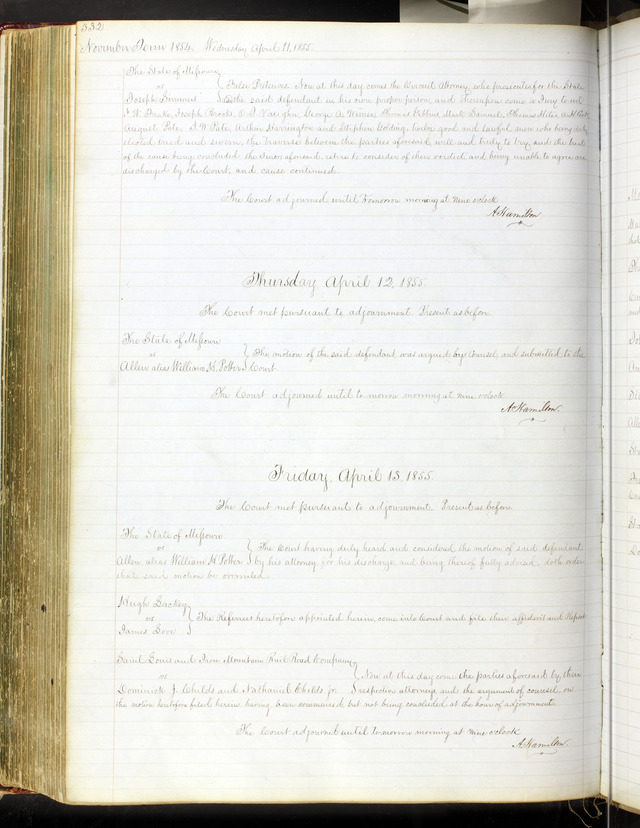 332
November Term 1854. Wednesday April 11, 1855.
The State of Missouri
vs } False Pretences. Now at this day comes the Circuit Attorney, who prosecutes for the State
Joseph and the said defendant in his own proper person, and thereupon come a Jury to wit
J. W. Joseph Brooks, George A. Thomas Samuel, Thomas
August Peter, F. W. Pate, Arthur Harrington and Stephen good and lawful men who being duly
elected tried and sworn, the traverse between the parties aforesaid well and truly to try and the trial
of the cause being concluded the Jurors aforesaid, retire to consider of their verdict and being unable to agree are
discharged by the Court, and cause continued.
The Court adjourned until Tomorrow morning at nine o'clock
A Hamilton
Thursday April 12, 1855.
The Court met pursuant to adjournment. Present as before
The State of Missouri
vs } The motion of the said defendant was argued by Counsel, and submitted to the
Allen alias William H. Potter } Court.
The Court adjourned until to morrow morning at nine o'clock
A Hamilton.
Friday, April 13, 1855.
The Court met pursuant to adjournment. Present as before.
The State of Missouri
vs } The Court having duly heard and considered the motion of said defendant
Allen, alias William H Potter } by his attorney for his discharge and being thereof fully advised, doth order
that said motion be overruled.
Hugh Lackey
vs } The Referees heretofore appointed herein, come into Court and file their affidavit and Report
James
Saint Louis and Iron Mountain Rail Road Company
vs } Now at this day come the parties aforesaid by their
Dominick J. Childs and Nathaniel Childs jr. } respective attorneys, and the argument of counsel, on
the motion heretofore filed herein having been commenced but not being concluded at the hour of adjournment.
The Court adjourned until to morrow morning at nine o'clock
A Hamilton.